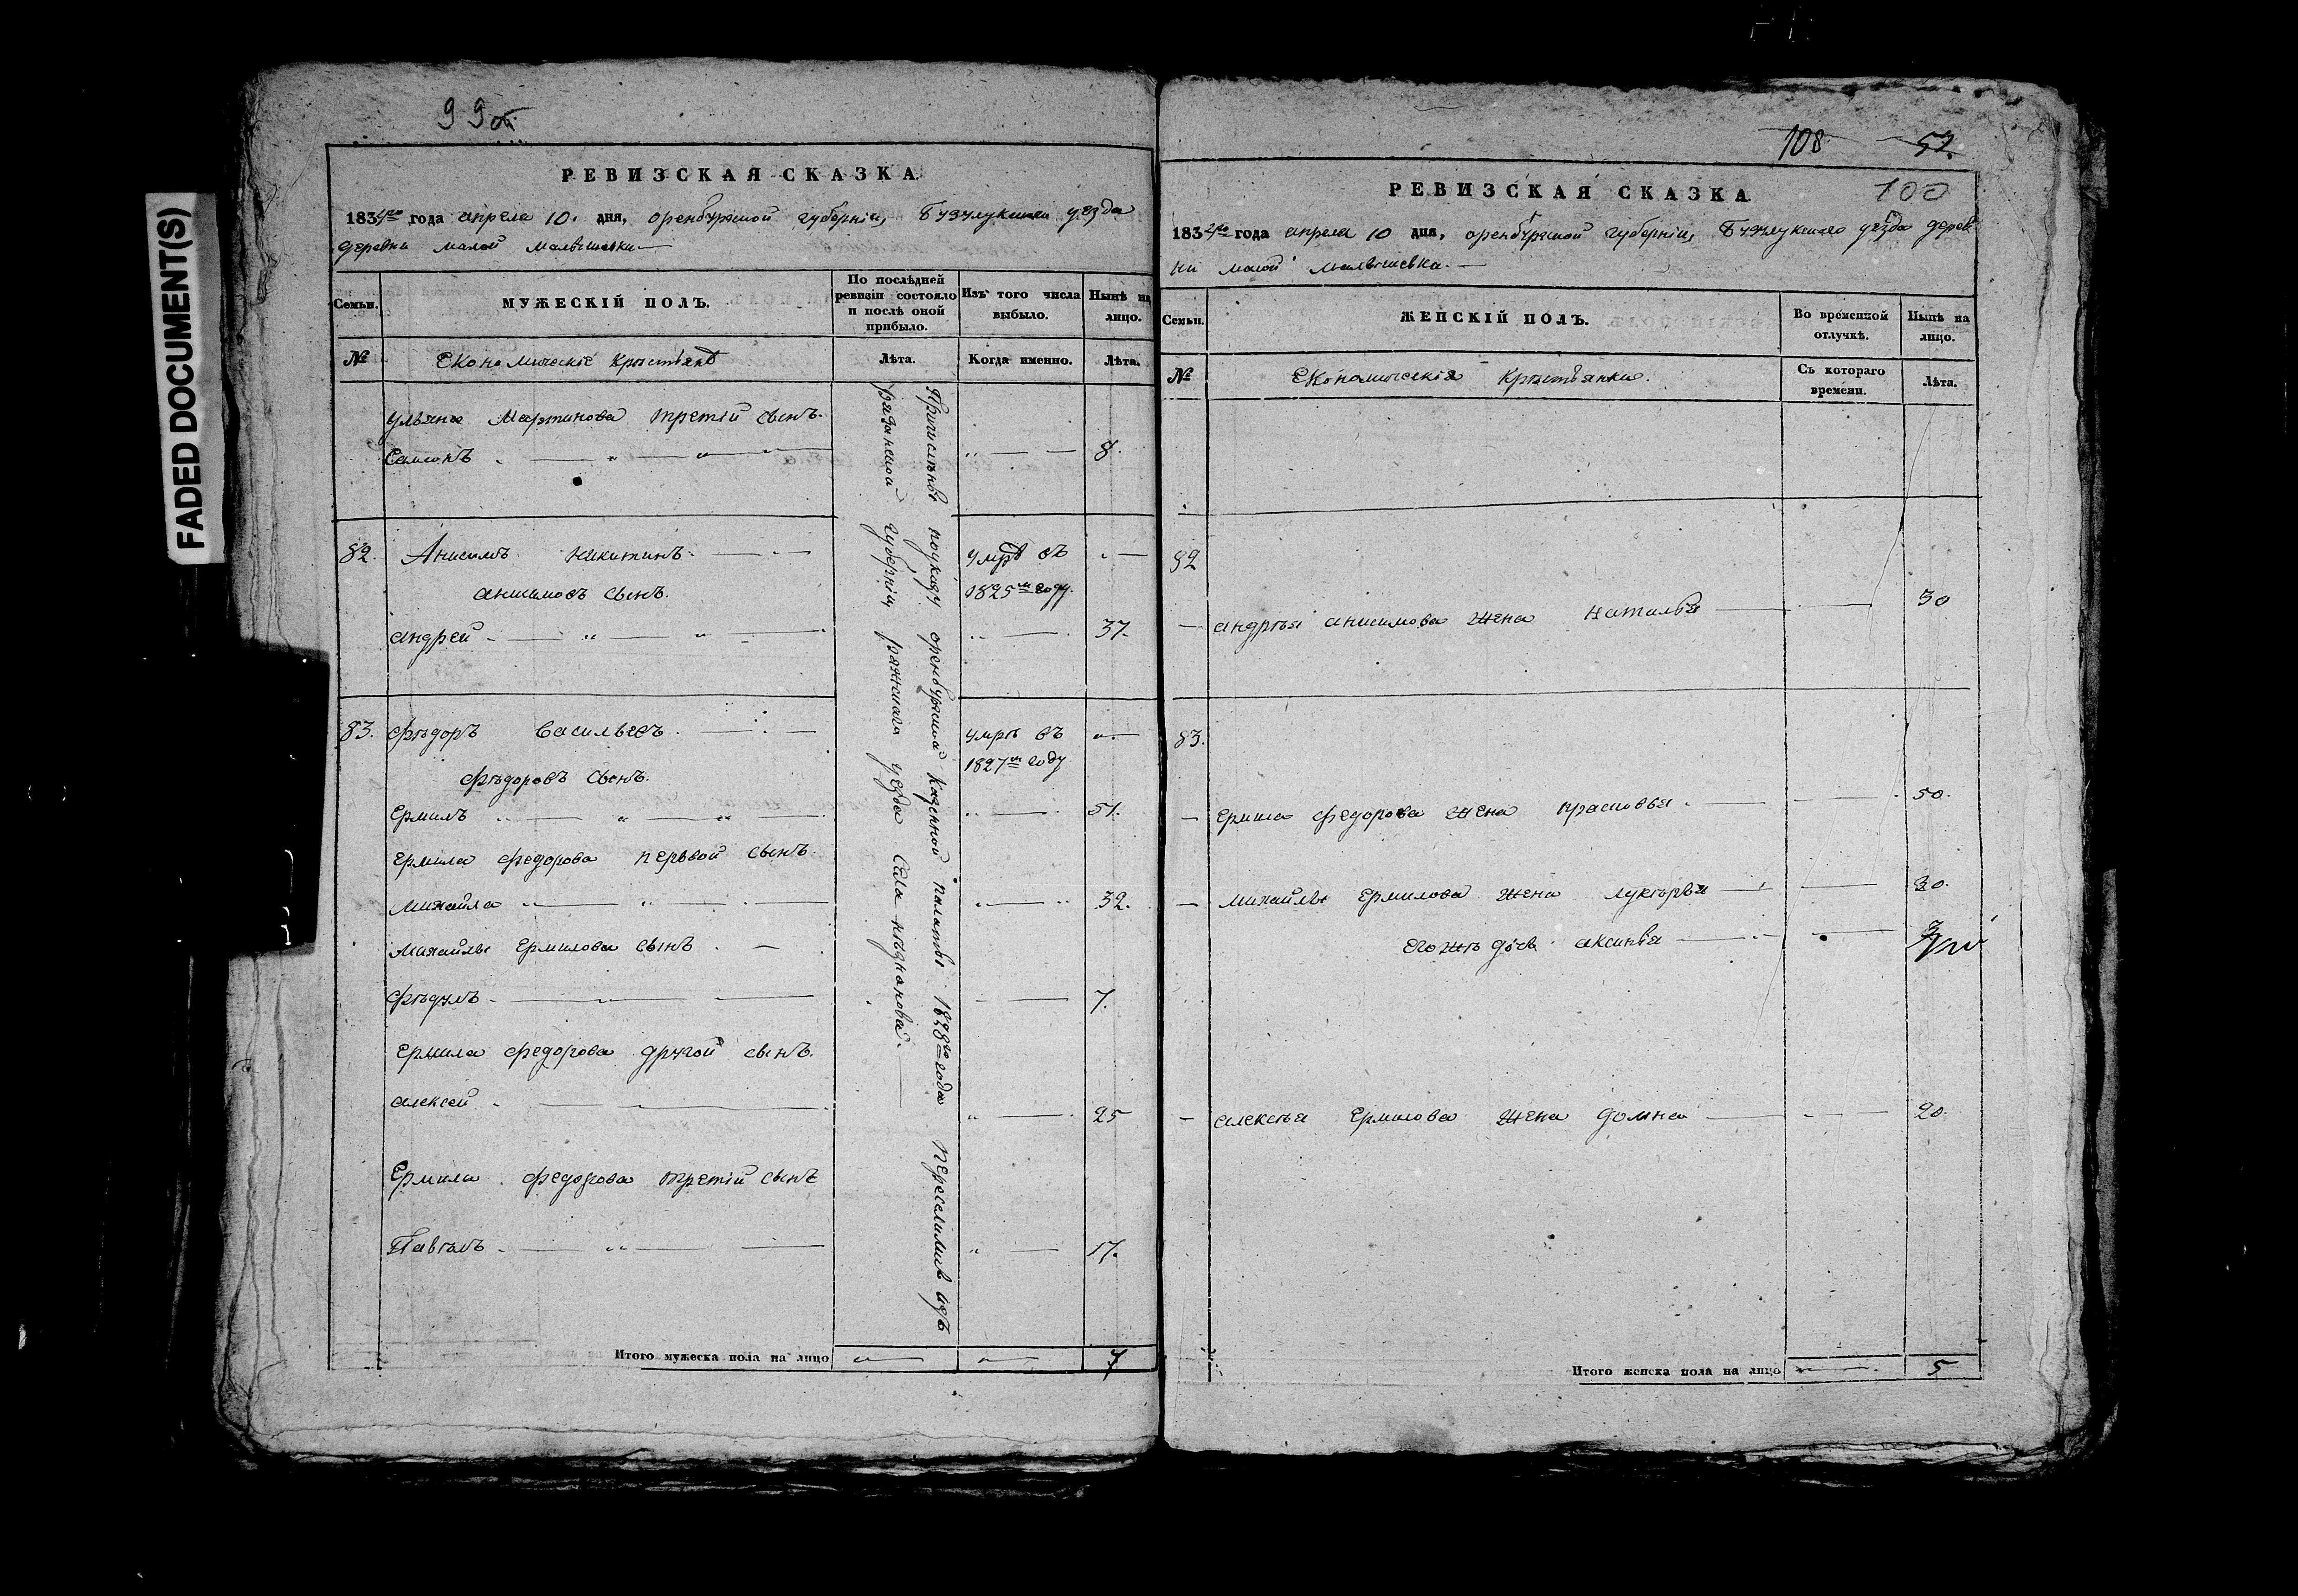 FADED DOCUMENT(S)
99об
РЕВИЗСКАЯ СКАЗКА.
1834го года апреля 10. дня, оренбургской губернiи, Бузулукскаго уезда
деревни малой малышевки
Семьи.
МУЖЕСКIЙ ПОЛЪ.
По послѣдней ревизiи состояло и послѣ оной прибыло.
Изъ того числа выбыло.
Нынѣ на лицо.
№
Економическiе крѣстьянѣ
Лѣта.
Когда именно.
Лѣта.
ульяна Мартинова третiй сынъ.
Самсонъ 8.
82. Анисимъ никитинъ. умрѣ въ
анисимовъ сынъ. 1825м году.
андрей 37.
83. фѣдоръ васильевъ умрѣ въ
фѣдоровъ сынъ. 1827м году
Ермилъ 51.
Ермила федорова первой сынъ.
михайла 32.
михайлы Ермилова сынъ
фѣдулъ 7.
Ермила федорова другой сынъ.
алексей 25
Ермила федорова третiй сынъ
Павѣлъ 17.
Причислѣны поуказу оренбургской казенной палаты 1828го года переселились изъ
рязанской губернiи ряжскаго уезда села
Итого мужеска пола на лицо 7
108 52.
100
РЕВИЗСКАЯ СКАЗКА.
1834го года апреля 10 дня, оренбургской губернiи, Бузулукскаго уезда дерев
ни малой малышевки.
Семьи.
ЖЕНСКIЙ ПОЛЪ.
Во временной отлучкѣ.
Нынѣ на лицо.
№
Економическiя крѣстьянки.
Съ котораго времени.
Лѣта.
82
андрѣя анисимова жена наталья 30
83.
Ермила федорова жена прасковья 50.
михайлы Ермилова жена лукѣрья 30.
егожѣ дочь аксинья
алексѣя Ермилова жена домна 20.
Итого женска пола на лицо 5